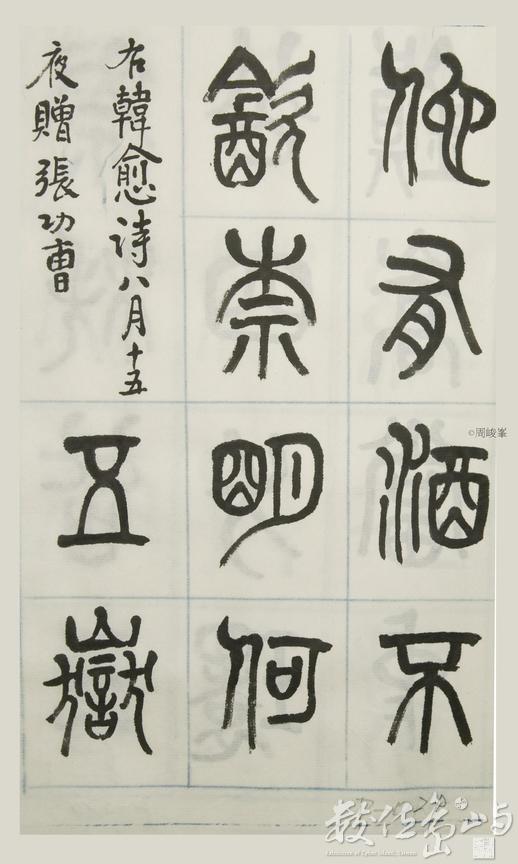 他有酒不
飲柰明何
右韓愈詩八月十五
夜贈張功曹
五嶽
©周峻峯